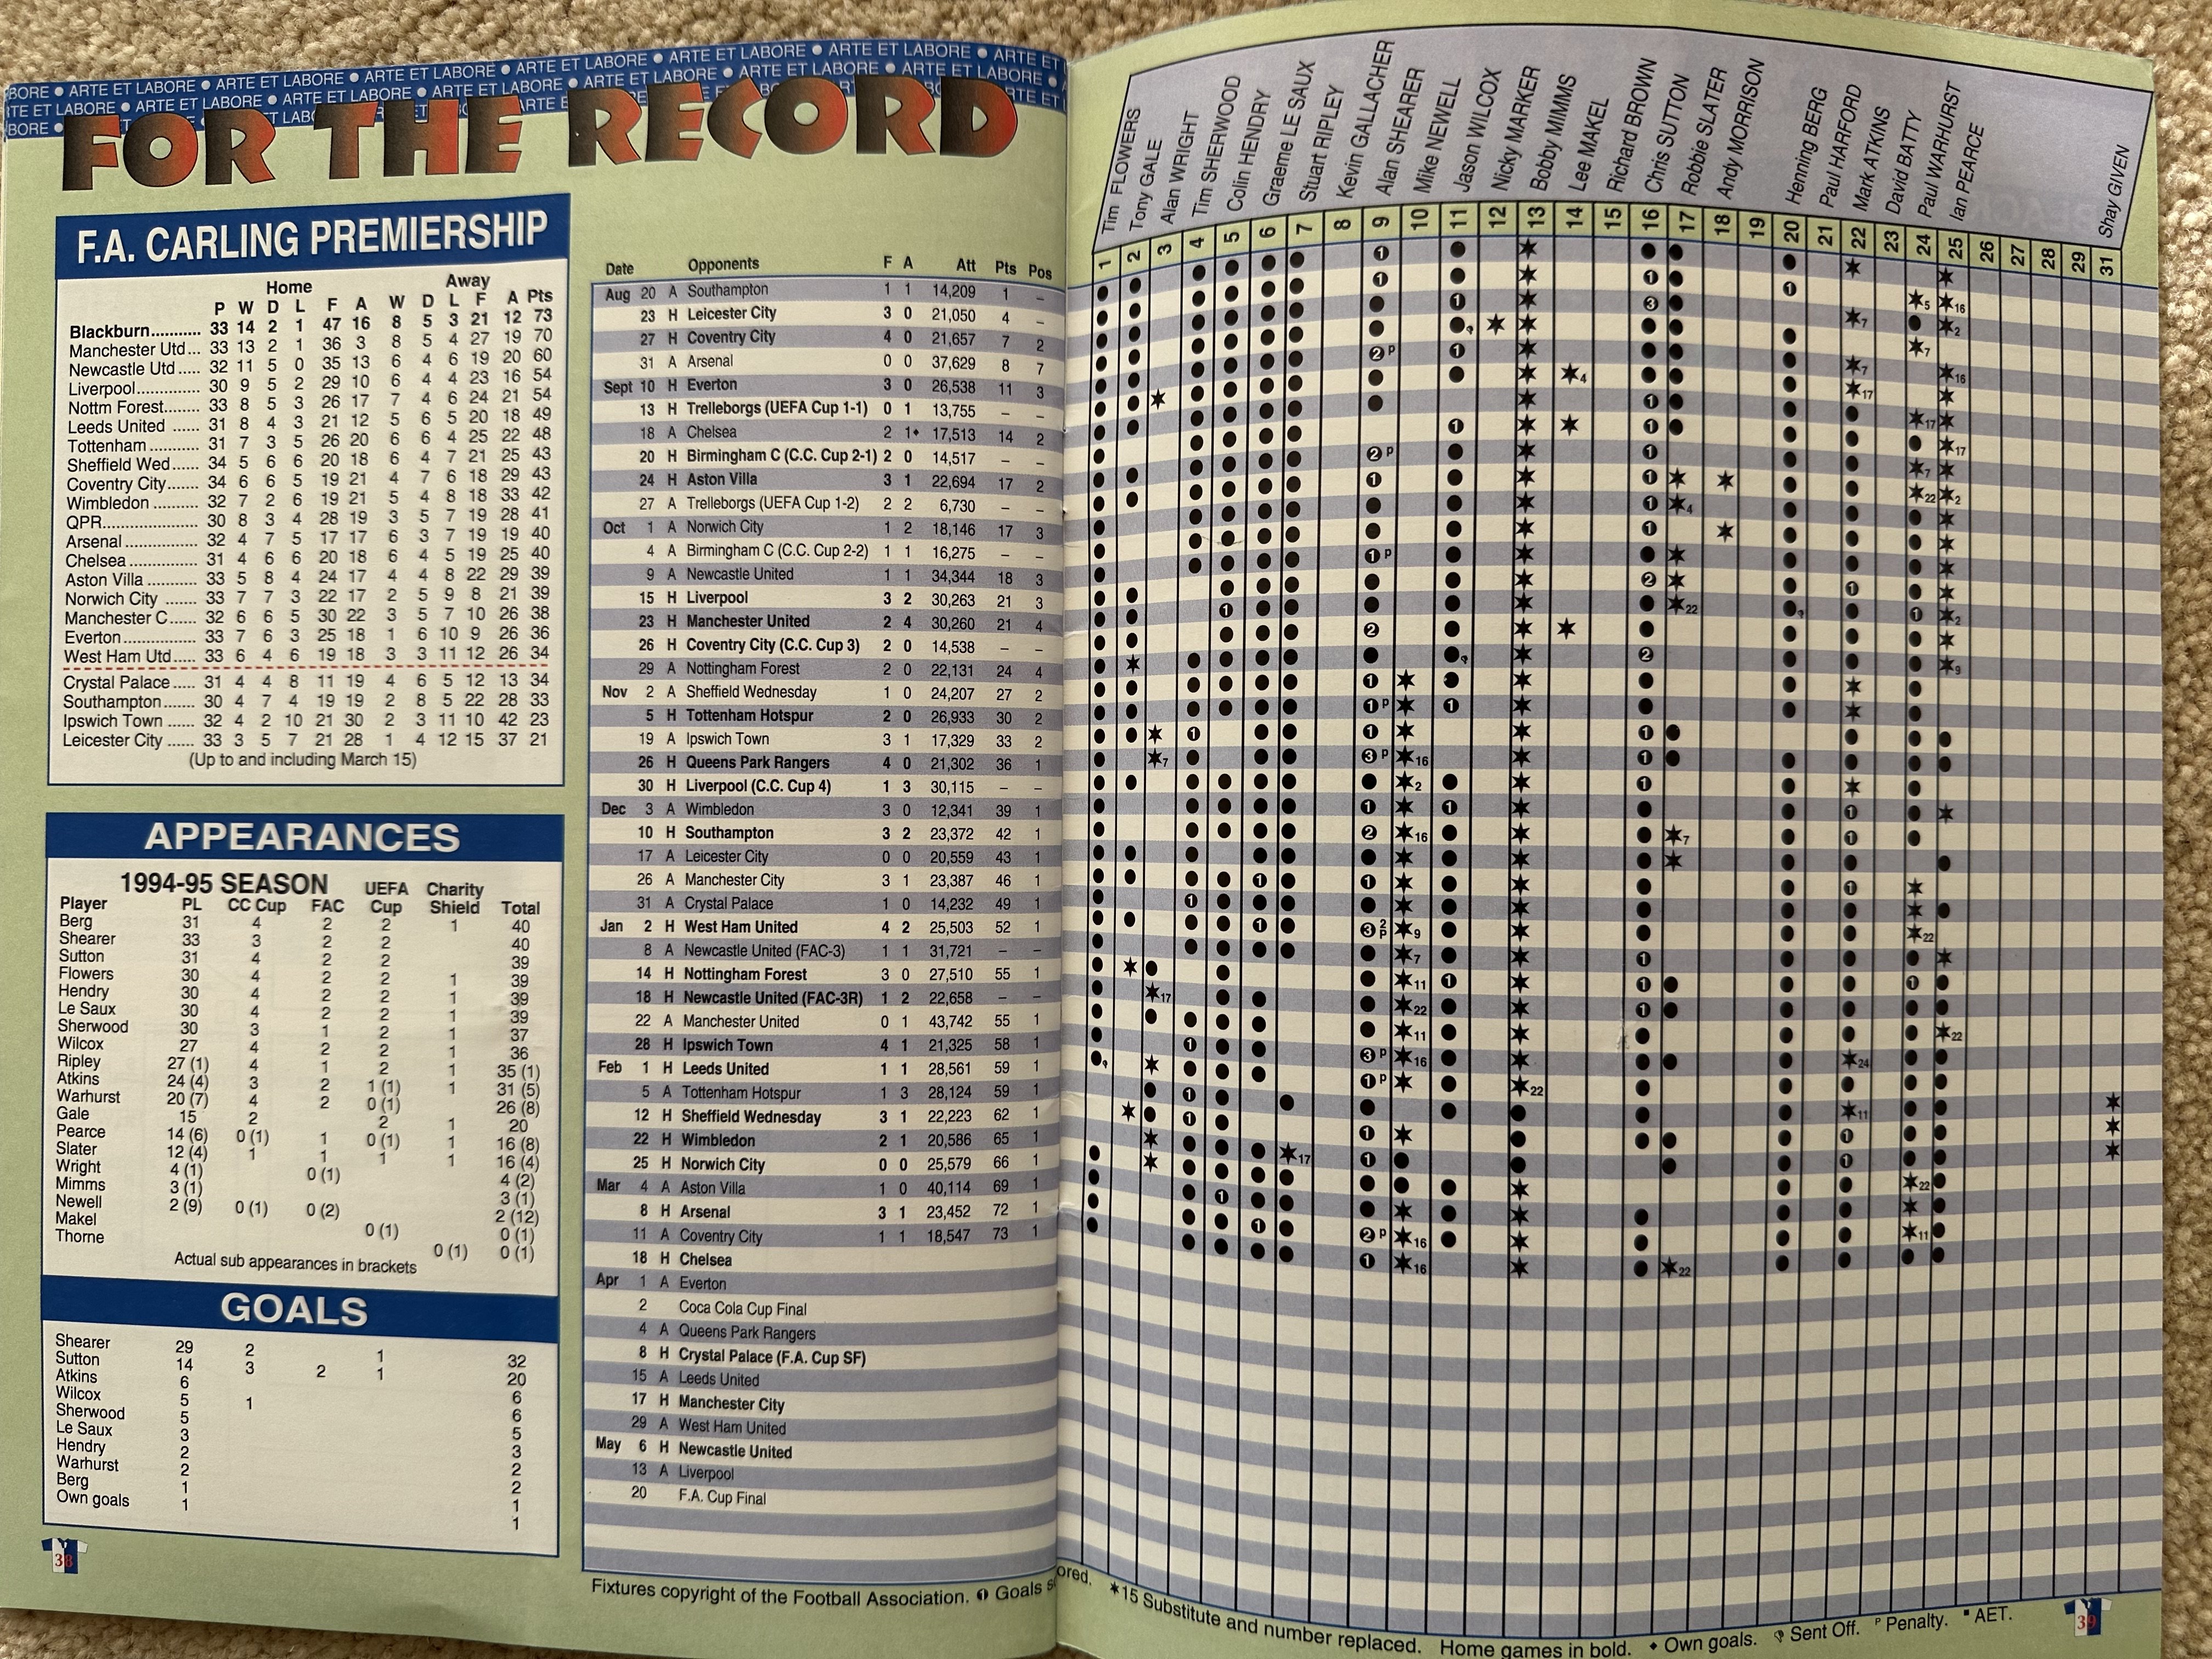 BORE ● ARTE ET LABORE ● ARTE ET LABORE ● ARTE ET LABORE ● ARTE ET LABORE ● ARTE ET LABORE ● ARTE
FOR THE RECORD
F.A. CARLING PREMIERSHIP
Home Away
P W D L F A W D L F A Pts
Blackburn........... 33 14 2 1 47 16 8 5 3 21 12 73
Manchester Utd... 33 13 2 1 36 3 8 5 4 27 19 70
Newcastle Utd ..... 32 11 5 0 35 13 6 4 6 19 20 60
Liverpool............. 30 9 5 2 29 10 6 4 4 23 16 54
Nottm Forest........ 33 8 5 3 26 17 7 4 6 24 21 54
Leeds United ...... 31 8 4 3 21 12 5 6 5 20 18 49
Tottenham ........... 31 7 3 5 26 20 6 6 4 25 22 48
Sheffield Wed...... 34 5 6 6 20 18 6 4 7 21 25 43
Coventry City....... 34 6 6 5 19 21 4 7 6 18 29 43
Wimbledon ......... 32 7 2 6 19 21 5 4 8 18 33 42
QPR.................... 30 8 3 4 28 19 3 5 7 19 28 41
Arsenal ............... 32 4 7 5 17 17 6 3 7 19 19 40
Chelsea............... 31 4 6 6 20 18 6 4 5 19 25 40
Aston Villa ........... 33 5 8 4 24 17 4 4 8 22 29 39
Norwich City ....... 33 7 7 3 22 17 2 5 9 8 21 39
Manchester C...... 32 6 6 5 30 22 3 5 7 10 26 38
Everton................ 33 7 6 3 25 18 1 6 10 9 26 36
West Ham Utd..... 33 6 4 6 19 18 3 3 11 12 26 34
Crystal Palace ..... 31 4 4 8 11 19 4 6 5 12 13 34
Southampton ....... 30 4 7 4 19 19 2 8 5 22 28 33
Ipswich Town ...... 32 4 2 10 21 30 2 3 11 10 42 23
Leicester City ...... 33 3 5 7 21 28 1 4 12 15 37 21
(Up to and including March 15)
APPEARANCES
1994-95 SEASON
Player PL CC Cup FAC UEFA Cup Charity Shield Total
Berg 31 4 2 2 1 40
Shearer 33 3 2 2 40
Sutton 31 4 2 2 39
Flowers 30 4 2 2 1 39
Hendry 30 4 2 2 1 39
Le Saux 30 4 2 2 1 39
Sherwood 30 3 1 2 1 37
Wilcox 27 4 2 2 1 36
Ripley 27 (1) 4 1 2 1 35 (1)
Atkins 24 (4) 3 2 1 (1) 1 31 (5)
Warhurst 20 (7) 4 2 0 (1) 26 (8)
Gale 15 2 2 1 20
Pearce 14 (6) 0 (1) 1 0 (1) 1 16 (8)
Slater 12 (4) 1 1 1 1 16 (4)
Wright 4 (1) 0 (1) 4 (2)
Mimms 3 (1) 3 (1)
Newell 2 (9) 0 (1) 0 (2) 2 (12)
Makel 0 (1) 0 (1)
Thorne 0 (1) 0 (1)
Actual sub appearances in brackets
GOALS
Shearer 29 2 1 32
Sutton 14 3 2 1 20
Atkins 6 6
Wilcox 5 1 6
Sherwood 5 5
Le Saux 3 3
Hendry 2 2
Warhurst 2 2
Berg 1 1
Own goals 1 1
38
Date Opponents F A Att Pts Pos
Aug 20 A Southampton 1 1 14,209 1 –
23 H Leicester City 3 0 21,050 4 –
27 H Coventry City 4 0 21,657 7 2
31 A Arsenal 0 0 37,629 8 7
Sept 10 H Everton 3 0 26,538 11 3
13 H Trelleborgs (UEFA Cup 1-1) 0 1 13,755 – –
18 A Chelsea 2 1♦ 17,513 14 2
20 H Birmingham C (C.C. Cup 2-1) 2 0 14,517 – –
24 H Aston Villa 3 1 22,694 17 2
27 A Trelleborgs (UEFA Cup 1-2) 2 2 6,730 – –
Oct 1 A Norwich City 1 2 18,146 17 3
4 A Birmingham C (C.C. Cup 2-2) 1 1 16,275 – –
9 A Newcastle United 1 1 34,344 18 3
15 H Liverpool 3 2 30,263 21 3
23 H Manchester United 2 4 30,260 21 4
26 H Coventry City (C.C. Cup 3) 2 0 14,538 – –
29 A Nottingham Forest 2 0 22,131 24 4
Nov 2 A Sheffield Wednesday 1 0 24,207 27 2
5 H Tottenham Hotspur 2 0 26,933 30 2
19 A Ipswich Town 3 1 17,329 33 2
26 H Queens Park Rangers 4 0 21,302 36 1
30 H Liverpool (C.C. Cup 4) 1 3 30,115 – –
Dec 3 A Wimbledon 3 0 12,341 39 1
10 H Southampton 3 2 23,372 42 1
17 A Leicester City 0 0 20,559 43 1
26 A Manchester City 3 1 23,387 46 1
31 A Crystal Palace 1 0 14,232 49 1
Jan 2 H West Ham United 4 2 25,503 52 1
8 A Newcastle United (FAC-3) 1 1 31,721 – –
14 H Nottingham Forest 3 0 27,510 55 1
18 H Newcastle United (FAC-3R) 1 2 22,658 – –
22 A Manchester United 0 1 43,742 55 1
28 H Ipswich Town 4 1 21,325 58 1
Feb 1 H Leeds United 1 1 28,561 59 1
5 A Tottenham Hotspur 1 3 28,124 59 1
12 H Sheffield Wednesday 3 1 22,223 62 1
22 H Wimbledon 2 1 20,586 65 1
25 H Norwich City 0 0 25,579 66 1
Mar 4 A Aston Villa 1 0 40,114 69 1
8 H Arsenal 3 1 23,452 72 1
11 A Coventry City 1 1 18,547 73 1
18 H Chelsea
Apr 1 A Everton
2 Coca Cola Cup Final
4 A Queens Park Rangers
8 H Crystal Palace (F.A. Cup SF)
15 A Leeds United
17 H Manchester City
29 A West Ham United
May 6 H Newcastle United
13 A Liverpool
20 F.A. Cup Final
Tim FLOWERS
Tony GALE
Alan WRIGHT
Tim SHERWOOD
Colin HENDRY
Graeme LE SAUX
Stuart RIPLEY
Kevin GALLACHER
Alan SHEARER
Mike NEWELL
Jason WILCOX
Nicky MARKER
Bobby MIMMS
Lee MAKEL
Richard BROWN
Chris SUTTON
Robbie SLATER
Andy MORRISON
Henning BERG
Paul HARFORD
Mark ATKINS
David BATTY
Paul WARHURST
Ian PEARCE
Shay GIVEN
1 2 3 4 5 6 7 8 9 10 11 12 13 14 15 16 17 18 19 20 21 22 23 24 25 26 27 28 29 31
Fixtures copyright of the Football Association. ❶ Goals scored. ★15 Substitute and number replaced. Home games in bold. ♦ Own goals. Sent Off. P Penalty. ■ AET.
39